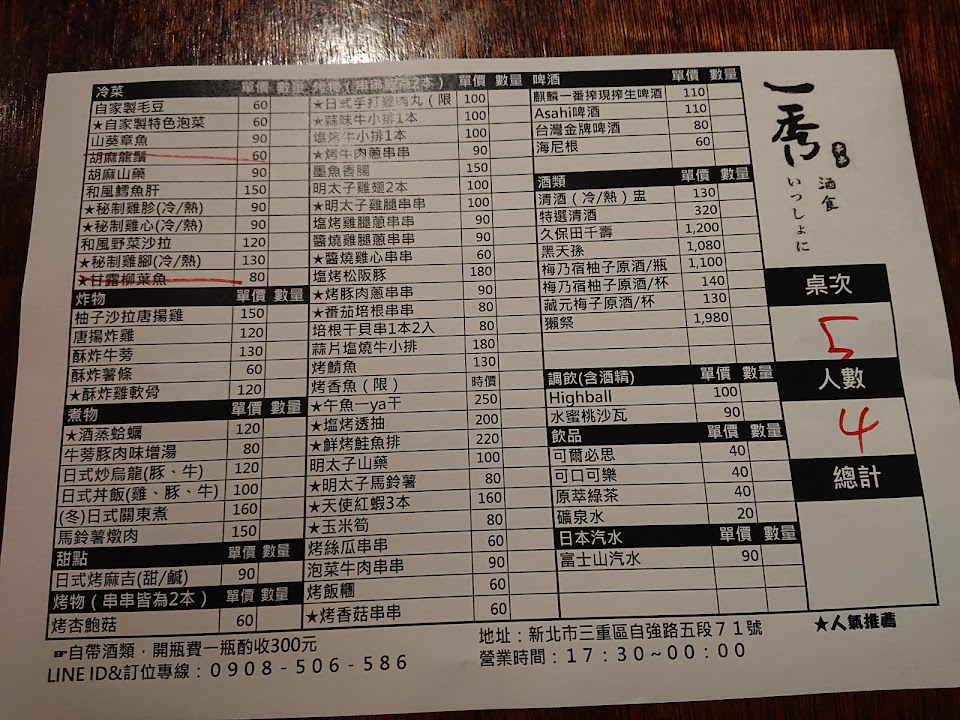 冷菜 單價 數量
自家製毛豆 60
★自家製特色泡菜 60
山葵章魚 90
胡麻龍鬚 60
胡麻山藥 90
和風鱈魚肝 150
★秘制雞胗(冷/熱) 90
★秘制雞心(冷/熱) 90
和風野菜沙拉 120
★秘制雞腳(冷/熱) 130
★甘露柳葉魚 80
炸物 單價 數量
柚子沙拉唐揚雞 150
唐揚炸雞 120
酥炸牛蒡 130
酥炸薯條 60
★酥炸雞軟骨 120
煮物 單價 數量
★酒蒸蛤蠣 120
牛蒡豚肉味增湯 80
日式炒烏龍(豚、牛) 120
日式丼飯(雞、豚、牛) 100
(冬)日式關東煮 160
馬鈴薯燉肉 150
甜點 單價 數量
日式烤麻吉(甜/鹹) 90
烤物（串串皆為2本） 單價 數量
烤杏鮑菇 60
烤物（串串皆為2本） 單價 數量
★日式手打雞肉丸（限 100
★蒜味牛小排1本 100
塩烤牛小排1本 100
★烤牛肉蔥串串 90
墨魚香腸 150
明太子雞翅2本 100
★明太子雞腿串串 100
塩烤雞腿蔥串串 90
醬燒雞腿蔥串串 90
★醬燒雞心串串 60
塩烤松阪豚 180
★烤豚肉蔥串串 90
★番茄培根串串 80
培根干貝串1本2入 80
蒜片塩燒牛小排 180
烤鯖魚 130
烤香魚（限） 時價
★午魚一ya干 250
★塩烤透抽 200
★鮮烤鮭魚排 220
明太子山藥 100
★明太子馬鈴薯 80
★天使紅蝦3本 160
★玉米筍 80
烤絲瓜串串 60
泡菜牛肉串串 90
烤飯糰 60
★烤香菇串串 60
啤酒 單價 數量
麒麟一番搾現搾生啤酒 110
Asahi啤酒 110
台灣金牌啤酒 80
海尼根 60
酒類 單價 數量
清酒（冷/熱）盅 130
特選清酒 320
久保田千壽 1,200
黑天孫 1,080
梅乃宿柚子原酒/瓶 1,100
梅乃宿柚子原酒/杯 140
藏元梅子原酒/杯 130
獺祭 1,980
調飲(含酒精) 單價 數量
Highball 100
水蜜桃沙瓦 90
飲品 單價 數量
可爾必思 40
可口可樂 40
原萃綠茶 40
礦泉水 20
日本汽水 單價 數量
富士山汽水 90
一秀
酒食
いっしょに
桌次
5
人數
4
總計
★人氣推薦
☛自帶酒類，開瓶費一瓶酌收300元
LINE ID&訂位專線：0908-506-586
地址：新北市三重區自強路五段７１號
營業時間：17:30~00:00